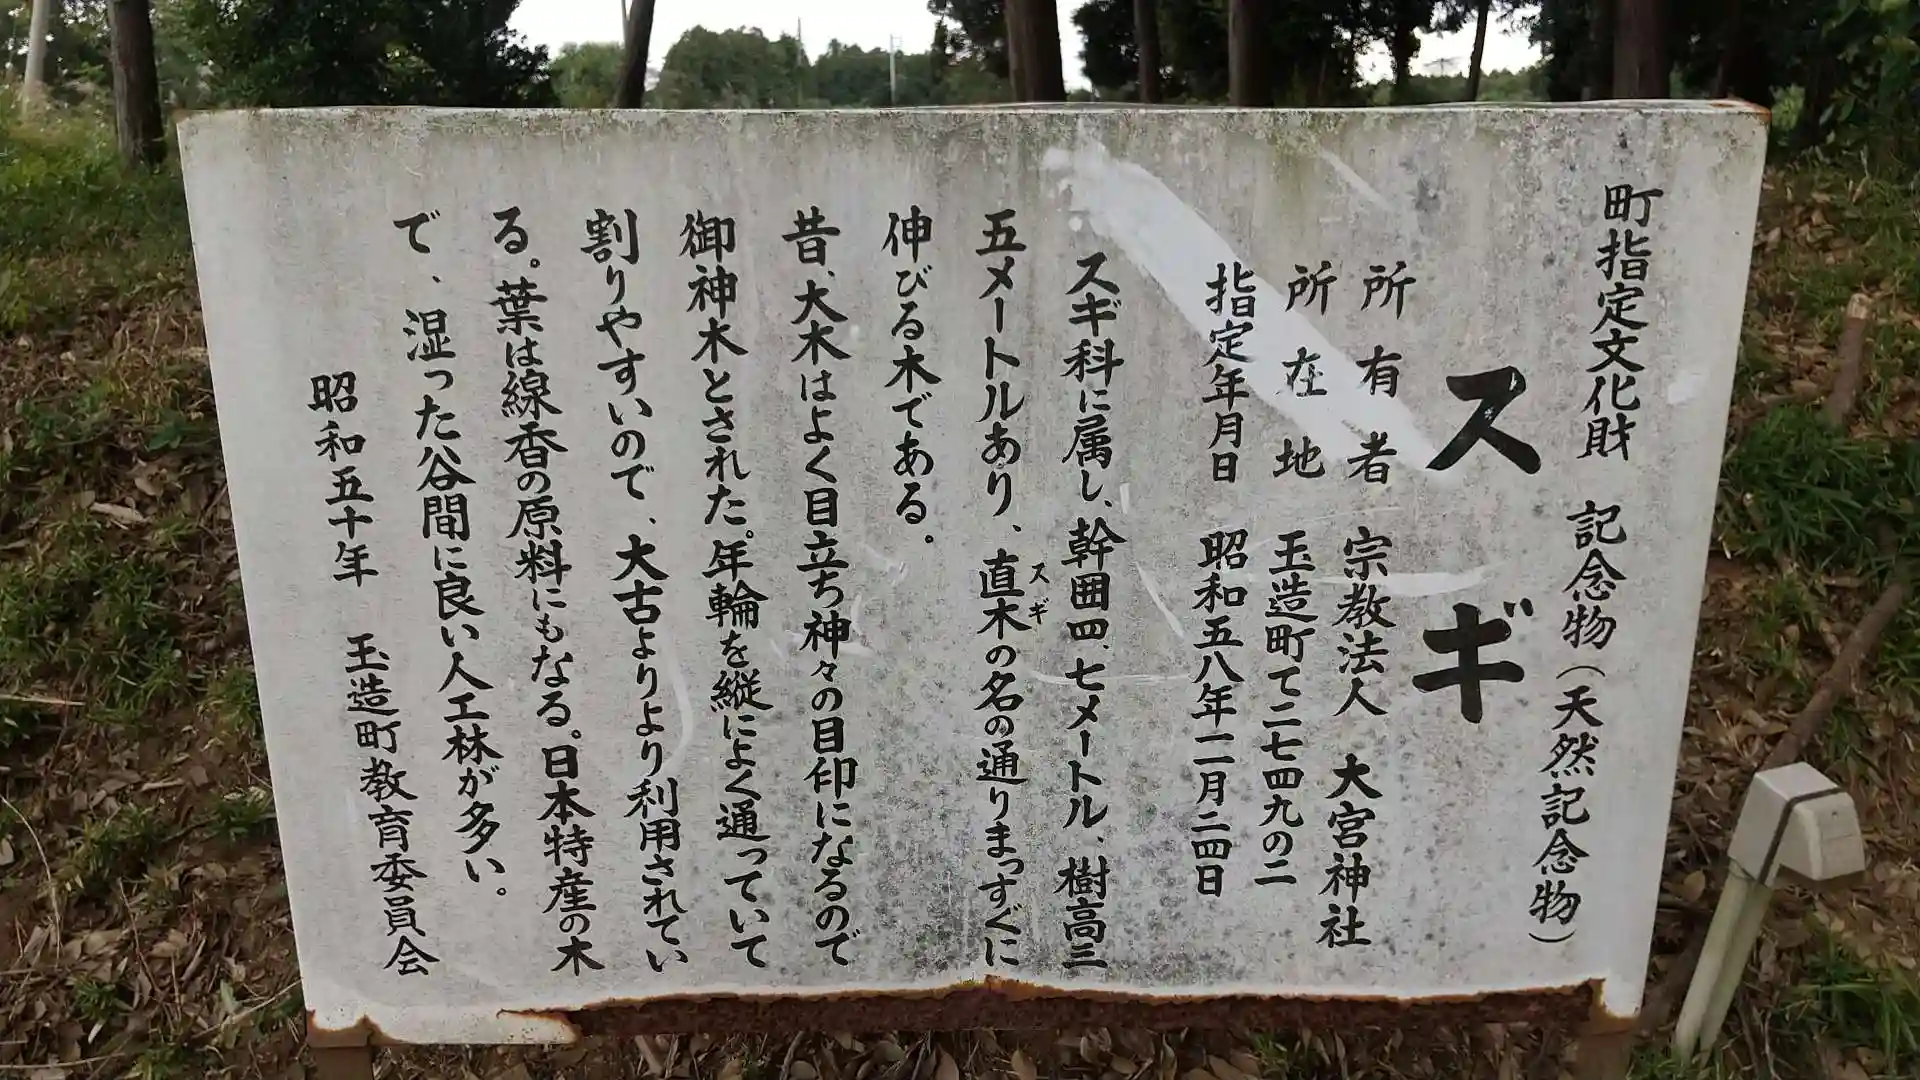 町指定文化財 記念物(天然記念物)
スギ
所有者 宗教法人 大宮神社
所在地 玉造町て二七四九の二
指定年月日 昭和五八年二月二四日
スギ科に属し、幹囲四、七メートル、樹高三
五メートルあり、直木の名の通りまっすぐに
スギ
伸びる木である。
昔、大木はよく目立ち神々の目印になるので
御神木とされた。年輪を縦によく通っていて
割りやすいので、大古よりより利用されてい
る。葉は線香の原料にもなる。日本特産の木
で、湿った谷間に良い人工林が多い。
昭和五十年 玉造町教育委員会